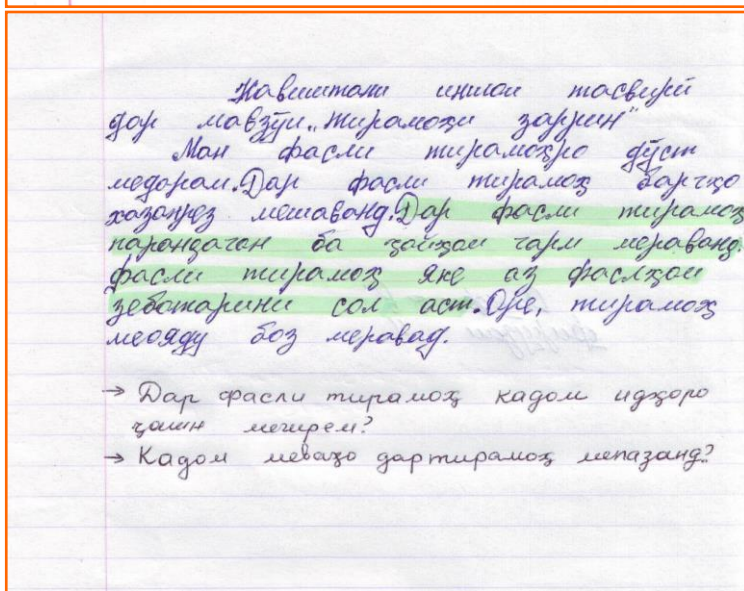 Навиштани иншои тасвирӣ
дар мавзӯи „тирамоҳи заррин"
Ман фасли тирамоҳро дӯст
медорам. Дар фасли тирамоҳ баргҳо
хазонрез мешаванд. Дар фасли тирамоҳ
парандагон ба ҷойҳои гарм мераванд.
фасли тирамоҳ яке аз фаслҳои
зеботарини сол аст. Оре, тирамоҳ
меояду боз меравад.
→ Дар фасли тирамоҳ кадом идҳоро
ҷашн мегирем?
→ Кадом меваҳо дар тирамоҳ мепазанд?